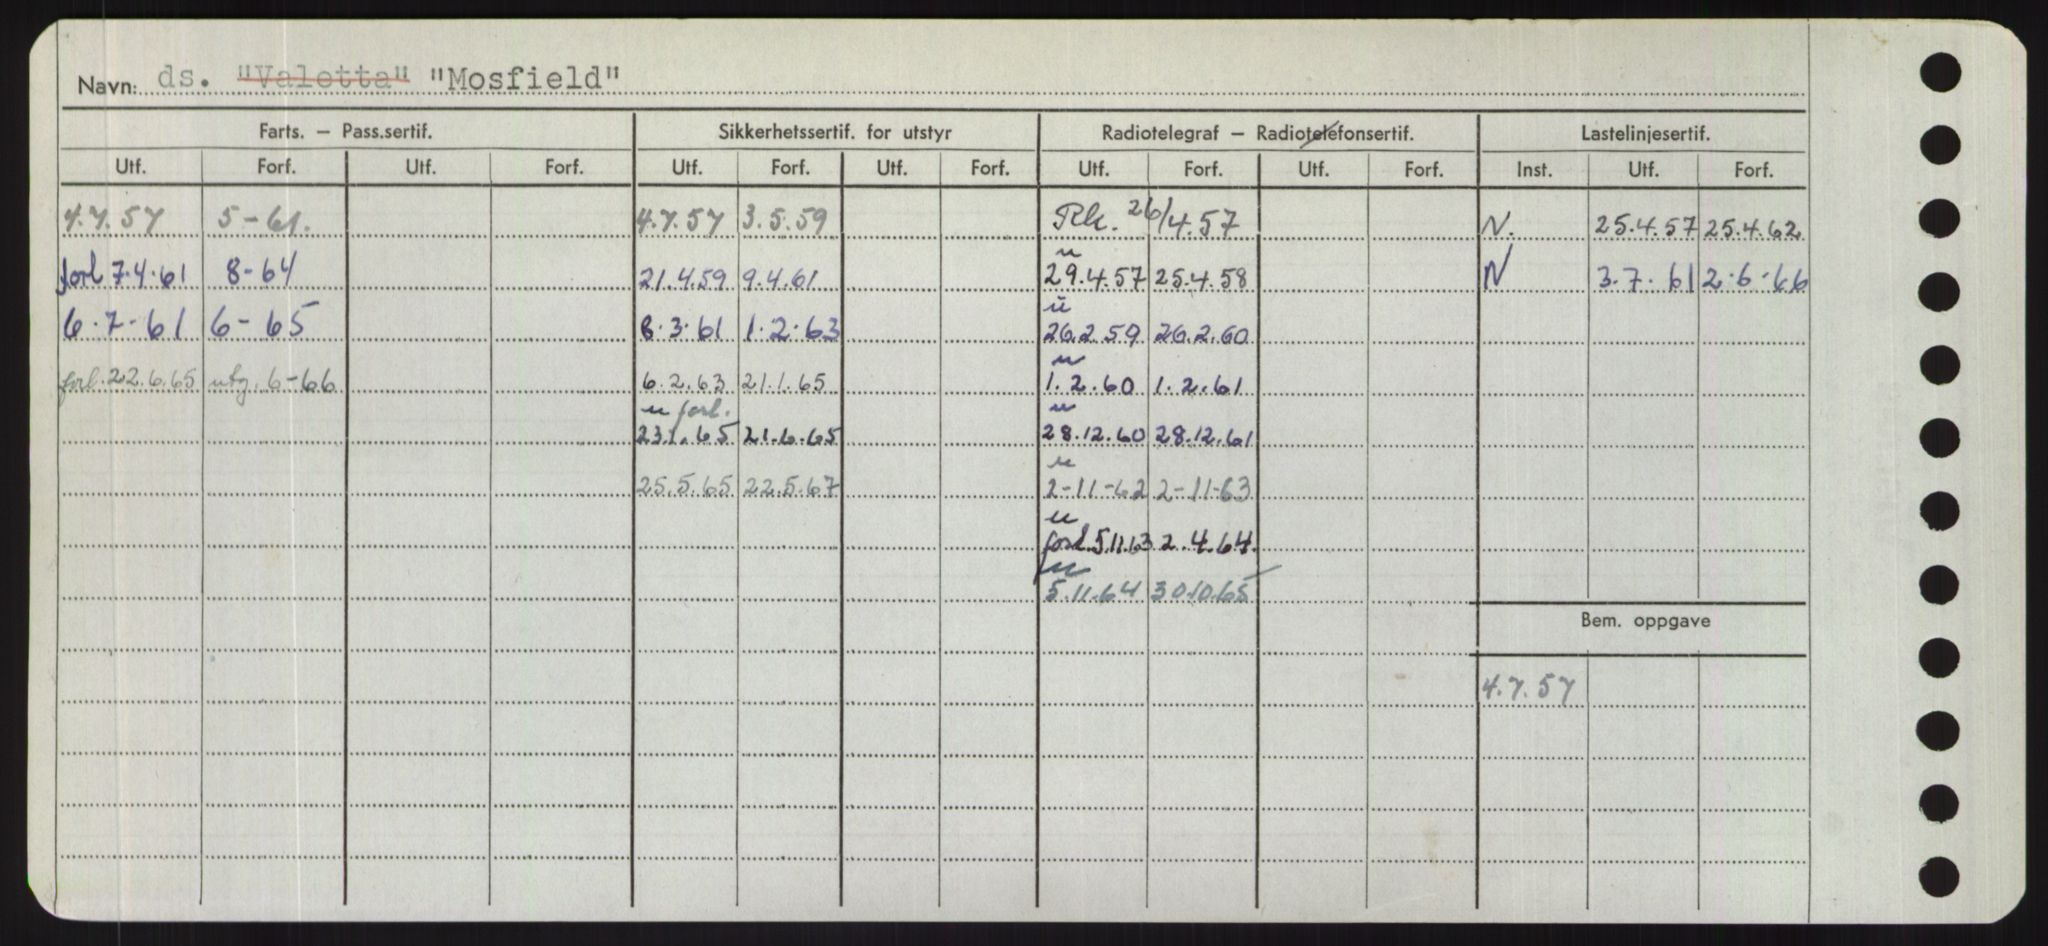 Navn: ds. "Valetta" "Mosfield"
Farts. – Pass.sertif. Sikkerhetssertif. for utstyr Radiotelegraf – Radiotelefonsertif. Lastelinjesertif.
Utf. Forf. Utf. Forf. Utf. Forf. Utf. Forf. Utf. Forf. Utf. Forf. Inst. Utf. Forf.
4.7.57 5-61. 4.7.57 3.5.59 Rk. 26/4.57 N. 25.4.57 25.4.62
u
forl 7.4.61 8-64 21.4.59 9.4.61 29.4.57 25.4.58 N 3.7.61 2.6.66
u
6.7.61 6-65 8.3.61 1.2.63 26.2.59 26.2.60
u
forl. 22.6.65 utg. 6-66 6.2.63 21.1.65 1.2.60 1.2.61
u forl. u
23.1.65 21.6.65 28.12.60 28.12.61
u
25.5.65 22.5.67 2-11-62 2-11-63
u
forl. 5.11.63 2.4.64.
u
5.11.64 30.10.65
Bem. oppgave
4.7.57